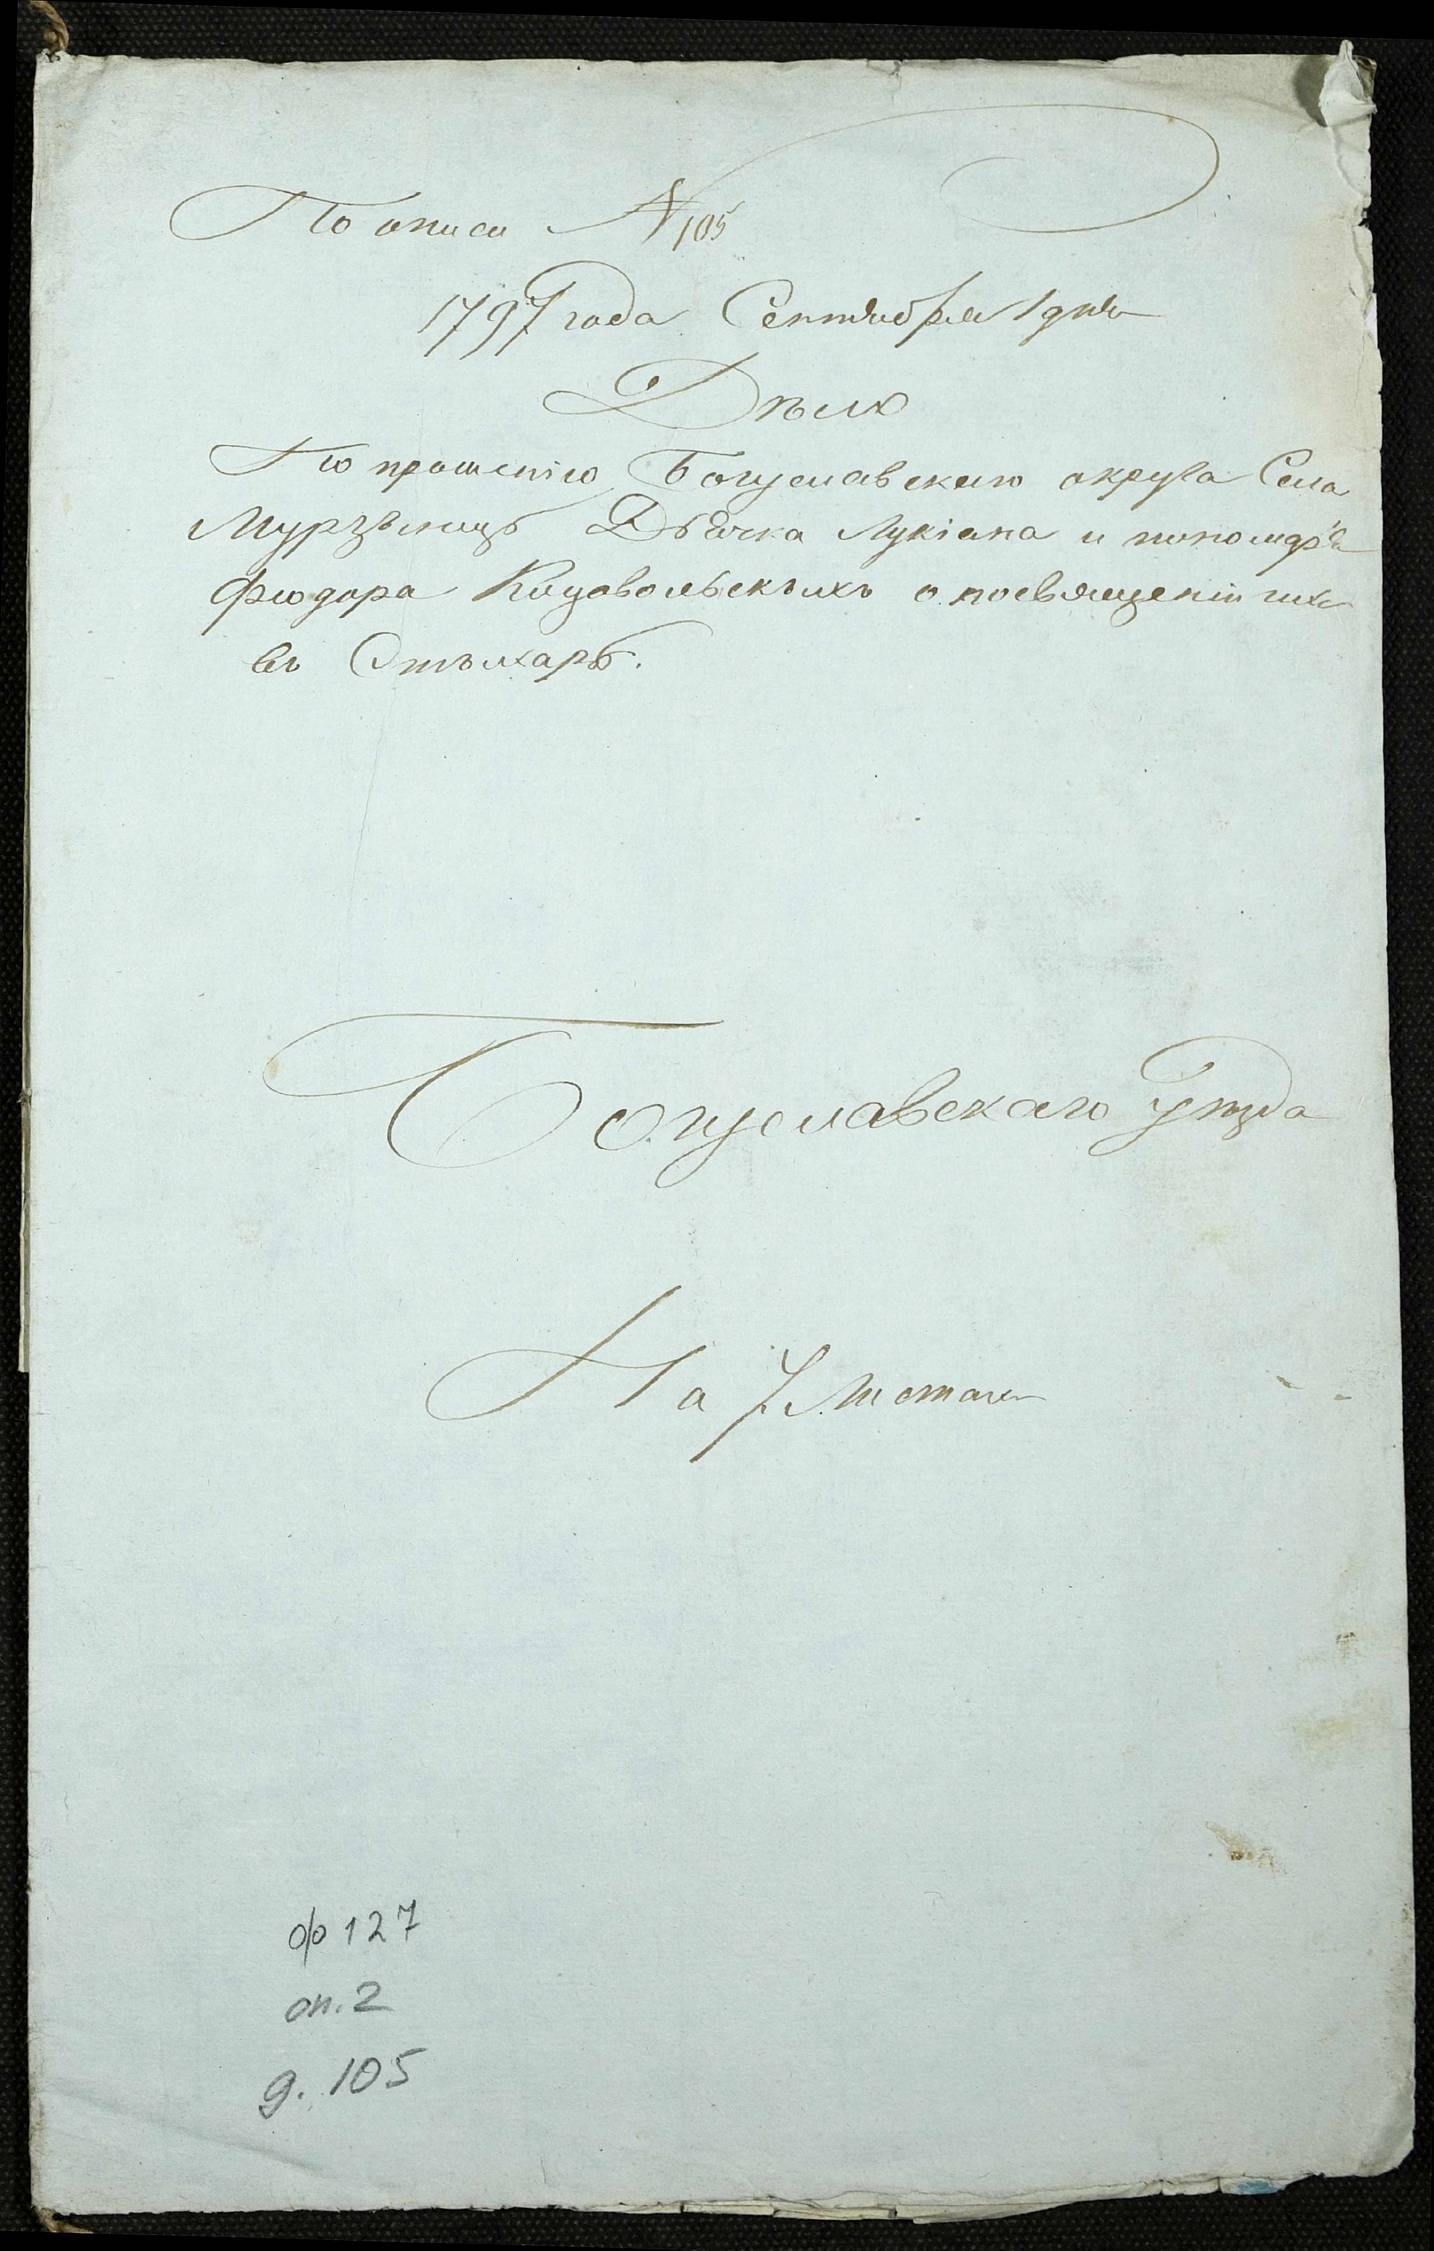 По описи № 105
1797 года Сентября 1 дня
Дѣло
По прошенію Богуславскаго округа Села
Мурзѣнецъ Дьячка Лукіана и пономаря
Феодора Коцовольскихъ о посвященіи ихъ
въ Стыхарь.
Богуславскаго уѣзда
На 7 листах
ф 127
оп. 2
д. 105